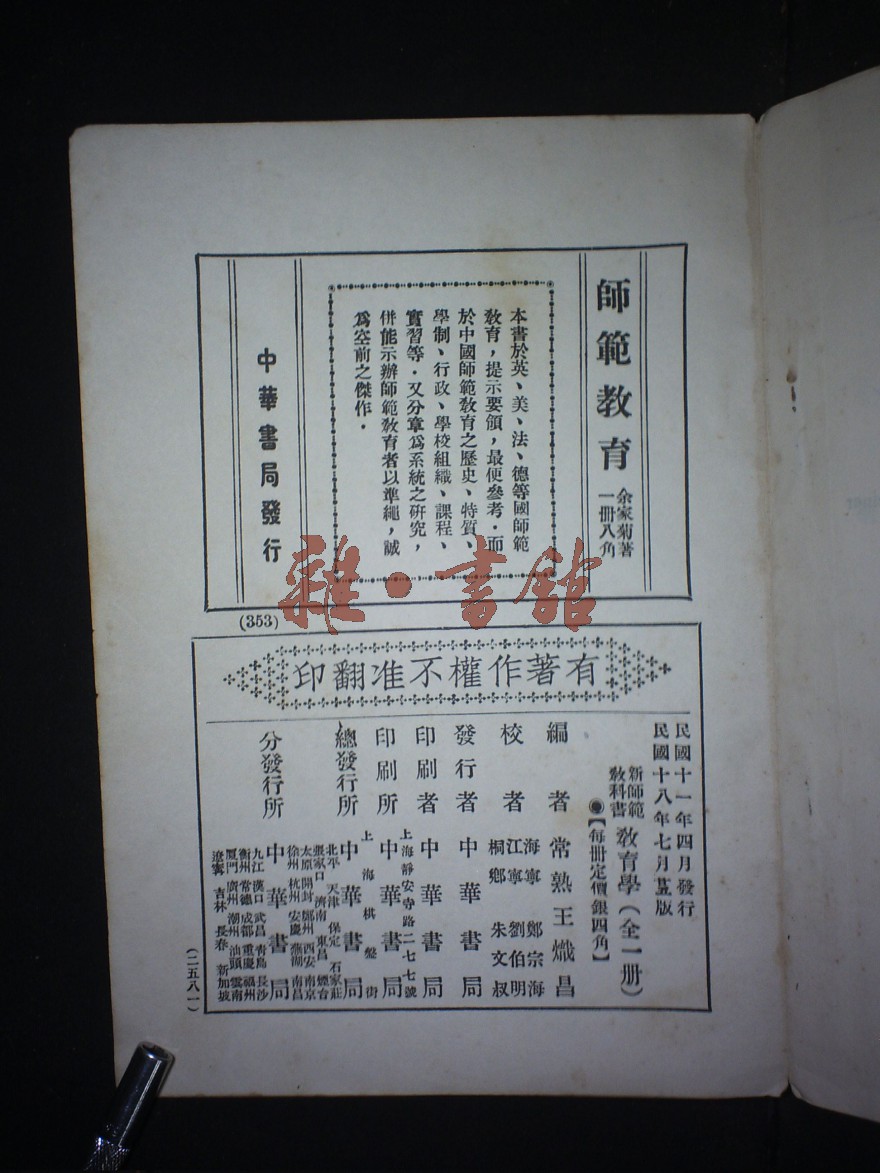 師範教育
余家菊著
一冊八角
本書於英、美、法、德等國師範
教育，提示要領，最便參考．而
於中國師範教育之歷史、特質、
學制、行政、學校組織、課程、
實習等．又分章爲系統之研究，
併能示辦師範教育者以準繩，誠
爲空前之傑作．
中華書局發行
(353)
雜·書館
有著作權不准翻印
民國十一年四月發行
民國十八年七月 版
新師範
教科書
教育學（全一册）
◉【每冊定價銀四角】
編者 常熟王熾昌
校者 海寧 鄭宗海
江寧 劉伯明
桐鄉 朱文叔
發行者 中華書局
印刷者 中華書局
印刷所 上海靜安寺路二七七號
中華書局
總發行所 上海棋盤街
中華書局
分發行所 北平 天津 保定 石家莊
張家口 濟南 東昌 煙台
太原 開封 鄭州 西安 南京
徐州 杭州 安慶 蕪湖 南昌
中華書局
九江 漢口 武昌 青島 長沙
衡州 常德 成都 重慶 福州
廈門 廣州 潮州 汕頭 雲南
遼寧 吉林 長春 新加坡
(二五八一)